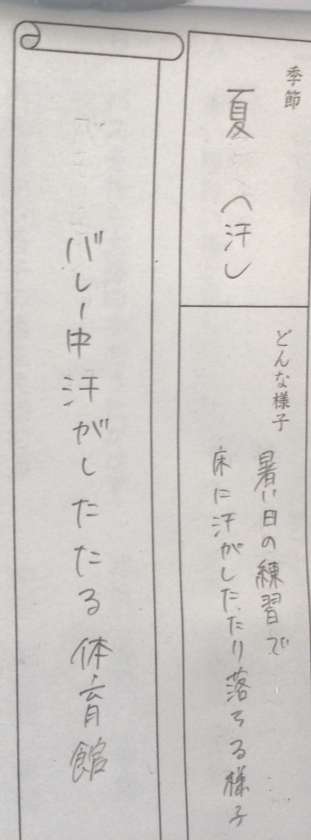 季節
夏 〈汗〉
どんな様子
暑い日の練習で
床に汗がしたたり落ちる様子
バレー中汗がしたたる体育館